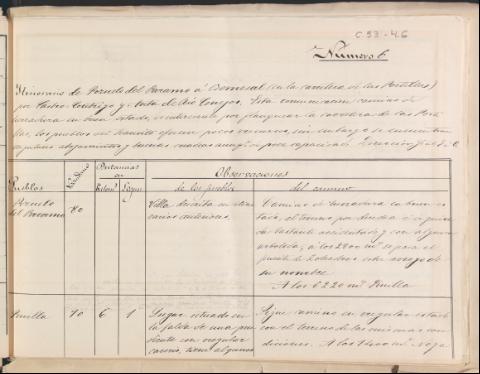 C.53-46
Número 6
Itinerario de Pornedo del Paramo á (en la carretera de las Portillas)
por Castro Contrigo y Nota de Rio Conejos. Esta comunicacion camino de
herradura en buen estado, es interesante por flanquear la carretera de las Porti
llas, los pueblos del transito ofrecen pocos recursos, sin embargo se encuentran
regulares alojamientos y buenas cuadras aunque de poca capacidad.
Pueblos
Vecinos
Distancias
en
Kilom.
Leguas
Observaciones
de los pueblos
del camino
del Paramo
80
Villa descrita en itine
rarios anteriores.
Camino de herradura en buen es
tado, el terreno por derecha é izquier
da bastante accidentado y con algun
arbolado; á los 2800 m.s se pasa el
puente de sobre arroyo de
su nombre.
A los 6220 m.s Pinilla
Pinilla
70
6
1
Lugar situado en
la falda de una pen
diente con regular
caserio, tiene algunos
Sigue camino en regular estado
con el terreno de las mismas con
diciones. A los 1400 m.s